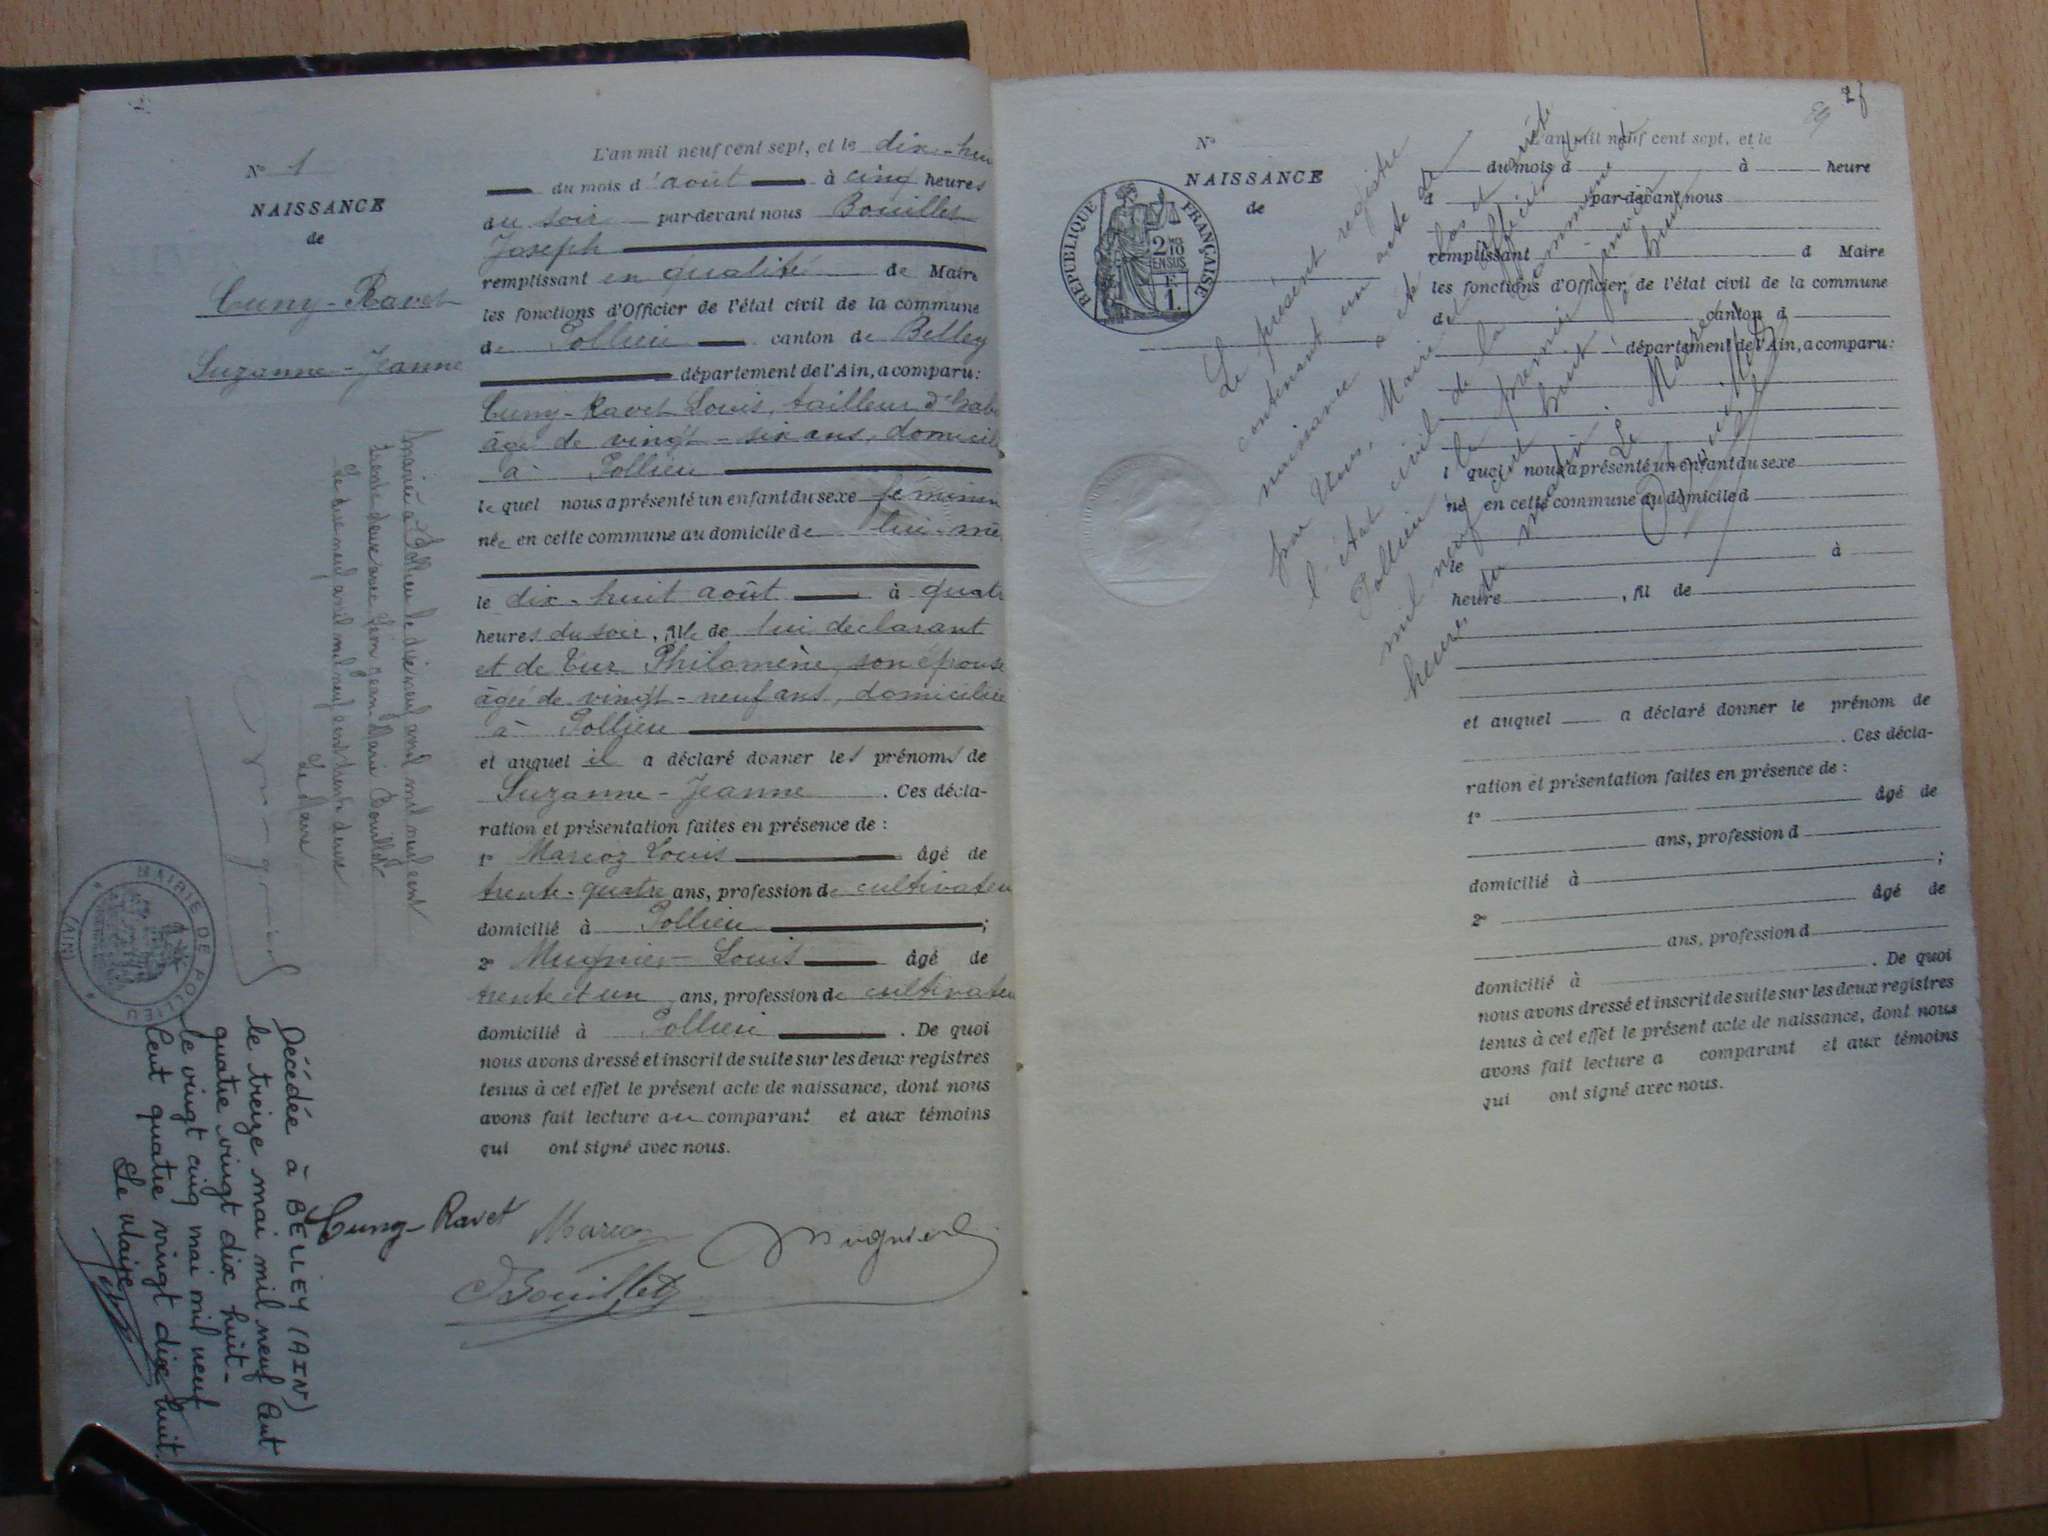 Nº 1
NAISSANCE
de
Cuny-Ravet
Suzanne-Jeanne
L'an mil neuf cent sept, et le dix-hui
du mois d'août à cinq heures
du soir par-devant nous Bouillet
Joseph
remplissant en qualité de Maire
les fonctions d'Officier de l'état civil de la commune
de Pollieu canton de Belley
département de l'Ain, a comparu:
Cuny-Ravet Louis, tailleur d'hab
âgé de vingt-six ans, domicili
à Pollieu
le quel nous a présenté un enfant du sexe féminin
née en cette commune au domicile de lui-mê
le dix-huit août à quatr
heures du soir, fille de lui déclarant
et de Philomène, son épouse
âgée de vingt-neuf ans, domiciliée
à Pollieu
et auquel il a déclaré donner les prénoms de
Suzanne-Jeanne. Ces décla-
ration et présentation faites en présence de :
1º Marcoz Louis âgé de
trente-quatre ans, profession de cultivateu
domicilié à Pollieu ;
2º Mugnier Louis âgé de
trente et un ans, profession de cultivateu
domicilié à Pollieu. De quoi
nous avons dressé et inscrit de suite sur les deux registres
tenus à cet effet le présent acte de naissance, dont nous
avons fait lecture au comparant et aux témoins
qui ont signé avec nous.
Cuny-Ravet Marcoz Mugnier
JBouillet
Mariée à Pollieu le dix neuf avril mil neuf cent
trente deux avec Jean-Marie Bouillet
Le dix neuf avril mil neuf cent trente deux
Le Maire
MAIRIE DE POLLIEU
(AIN)
Décédée à BELLEY (AIN)
le treize mai mil neuf cent
quatre vingt dix huit -
le vingt cinq mai mil neuf
cent quatre vingt dix huit.
Le Maire
Nº
NAISSANCE
de
RÉPUBLIQUE FRANÇAISE
2/10 EN SUS
1
L'an mil neuf cent sept, et le
du mois d à heure
d par-devant nous
remplissant d Maire
les fonctions d'Officier de l'état civil de la commune
de canton d
département de l'Ain, a comparu:
l quel nous a présenté un enfant du sexe
né en cette commune au domicile d
le à
heure , fil de
et auquel a déclaré donner le prénom de
. Ces décla-
ration et présentation faites en présence de :
1º âgé de
ans, profession d
domicilié à ;
2º âgé de
ans, profession d
domicilié à . De quoi
nous avons dressé et inscrit de suite sur les deux registres
tenus à cet effet le présent acte de naissance, dont nous
avons fait lecture a comparant et aux témoins
qui ont signé avec nous.
Le présent registre
contenant un acte de
naissance a été clos et arrêté
par Nous, Maire et officier de
l'état civil de la commune de
Pollieu le premier janvier
mil neuf cent huit à huit
heures du matin. Le Maire
JBouillet